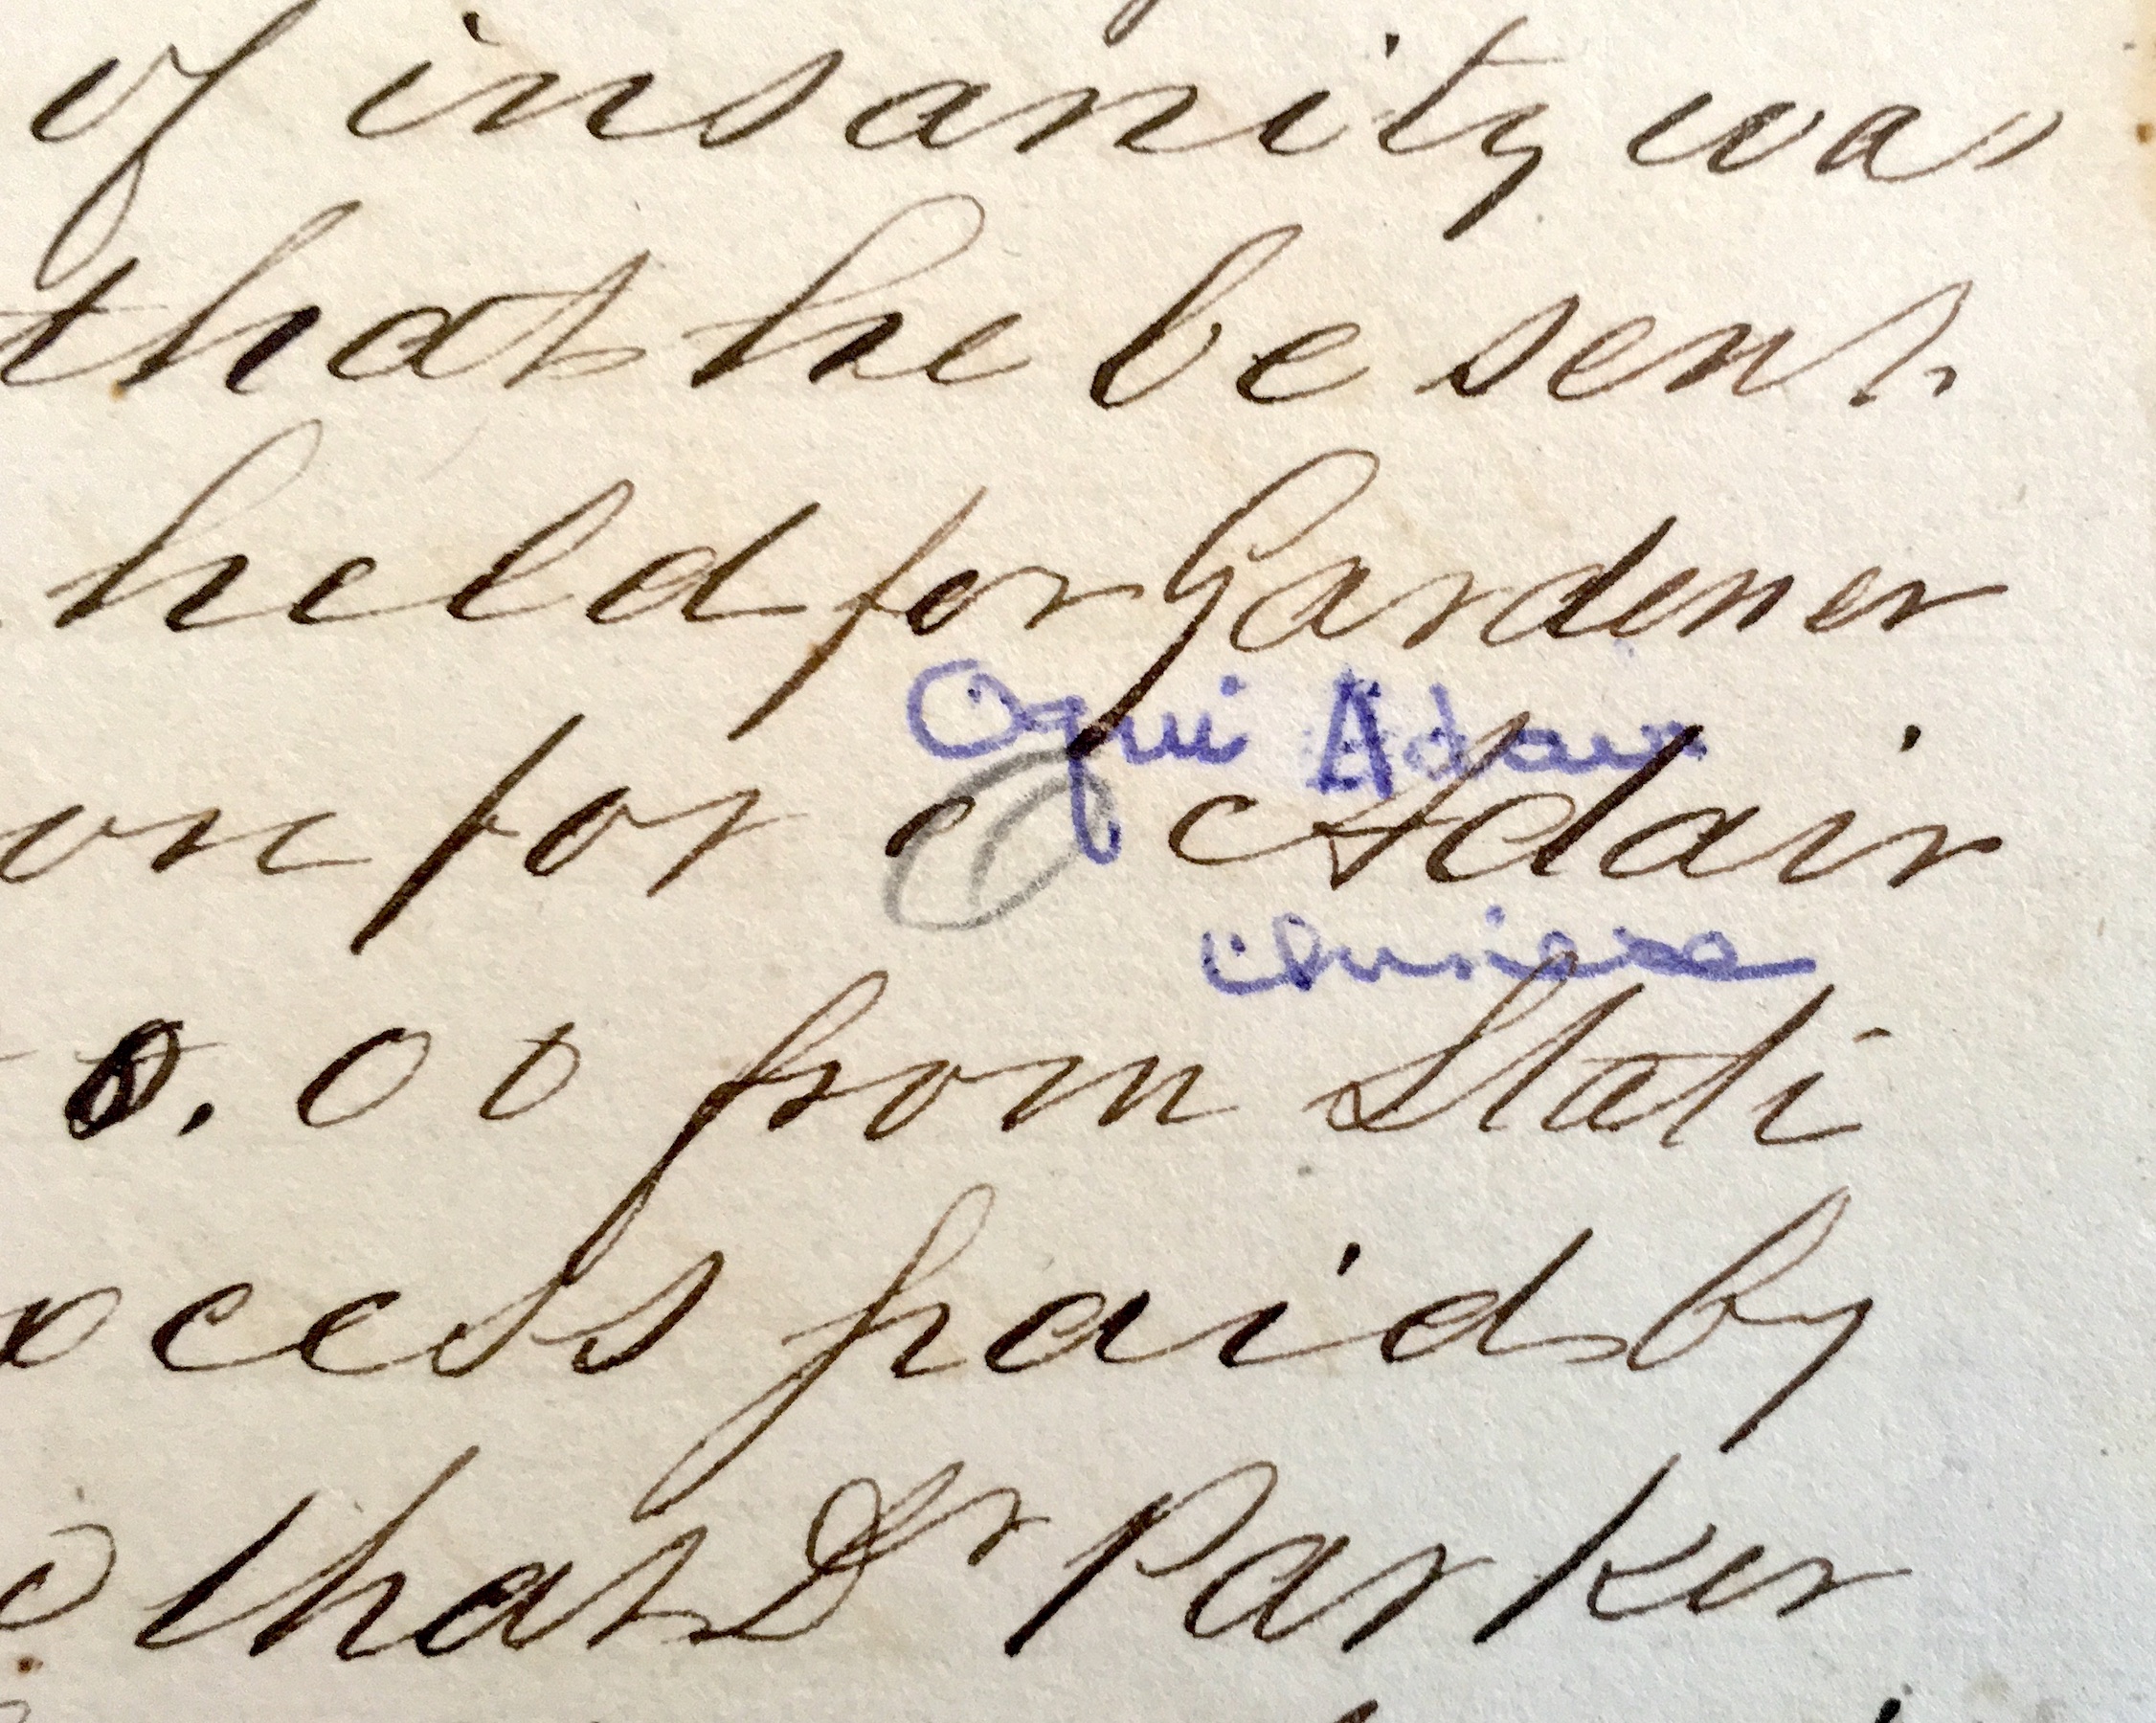 of insanity was
that he be sent
held for Gardener
Oqui Adair
on for Adair
Chinese
0.00 from State
xcess paid by
that Dr Parker